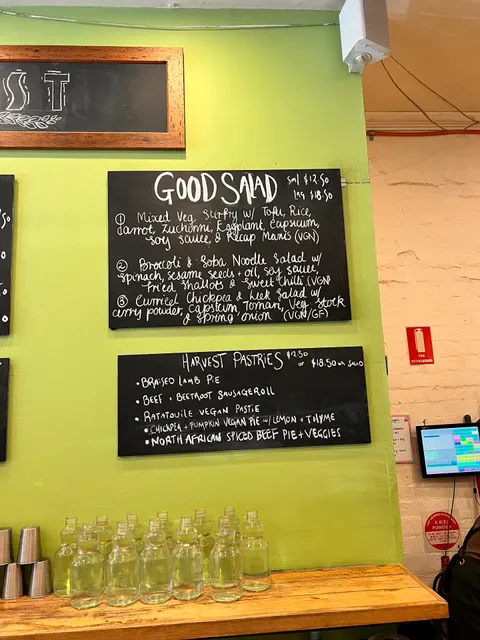 ST
GOOD SALAD
sml $12.50
lrg $18.50
① Mixed Veg Stirfry w/ Tofu, Rice,
Carrot, Zucchinni, Eggplant, Capsicum,
Soy Sauce, & Kecap Manis (VGN)
② Broccoli & Soba Noodle Salad w/
Spinach, sesame seeds + oil, soy sauce,
fried shallots & sweet chilli (VGN)
③ Curried Chickpea & Leek Salad w/
curry powder, capsicum, Tomari, Veg Stock
& Spring onion (VGN/GF)
HARVEST PASTRIES $12.50
or $18.50 w/ SALAD
• BRAISED LAMB PIE
• BEEF + BEETROOT SAUSAGE ROLL
• RATATOUILE VEGAN PASTIE
• CHICKPEA + PUMPKIN VEGAN PIE w/ LEMON + THYME
• NORTH AFRICAN SPICED BEEF PIE + VEGGIES
FIRE
EXTINGUISHER
A:B(E)
POWDER